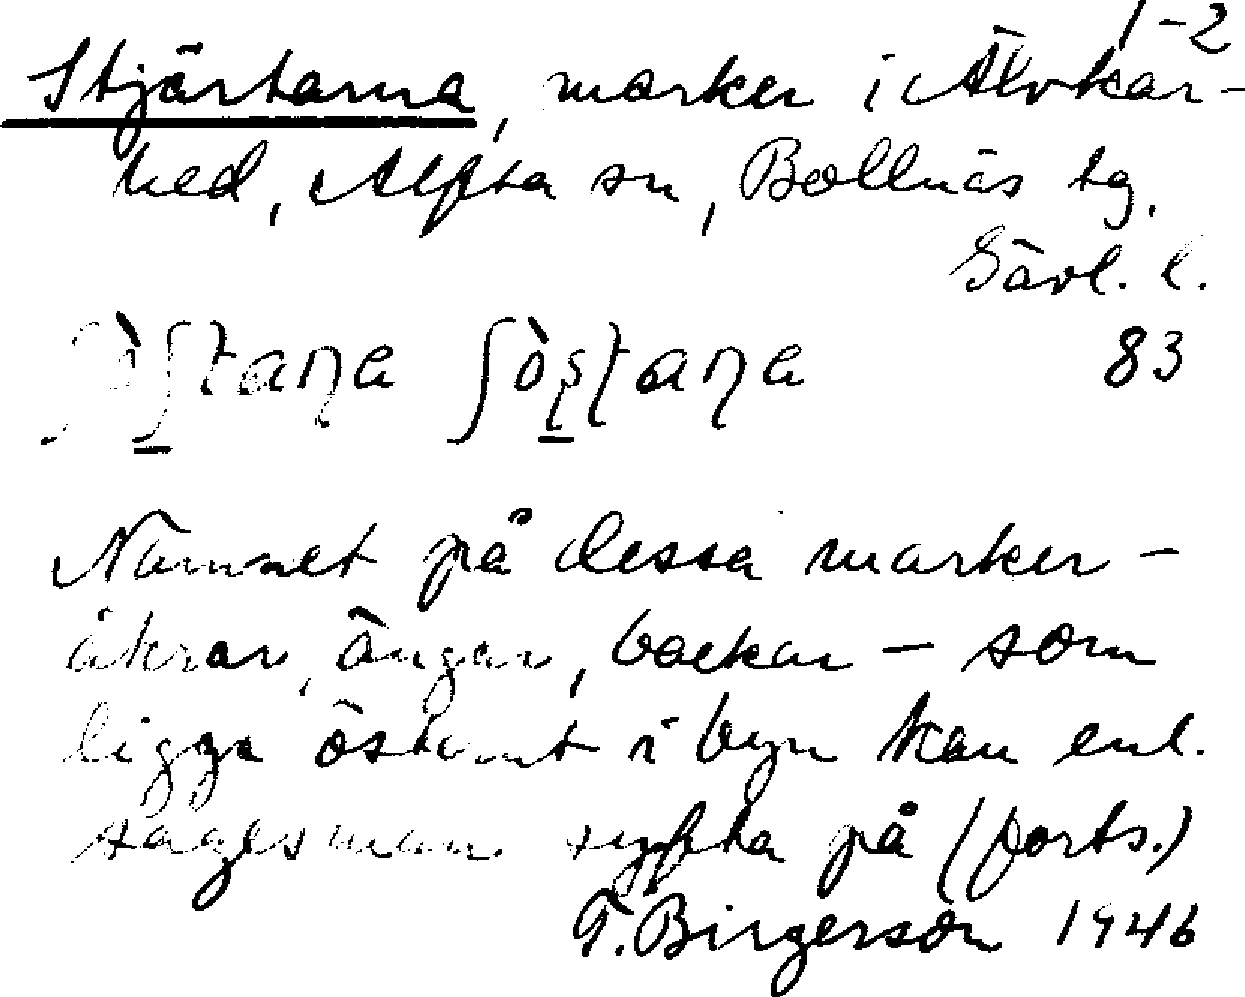 1-2
Stjärtarna, marker i Älvkar-
hed, Alfta sn, Bollnäs tg.
Gävl. l.
83
Namnet på dessa marker -
åkrar, ängar, backar - som
ligga östant i byn kan enl.
sagesman syfta på (forts.)
T. Birgerson 1946